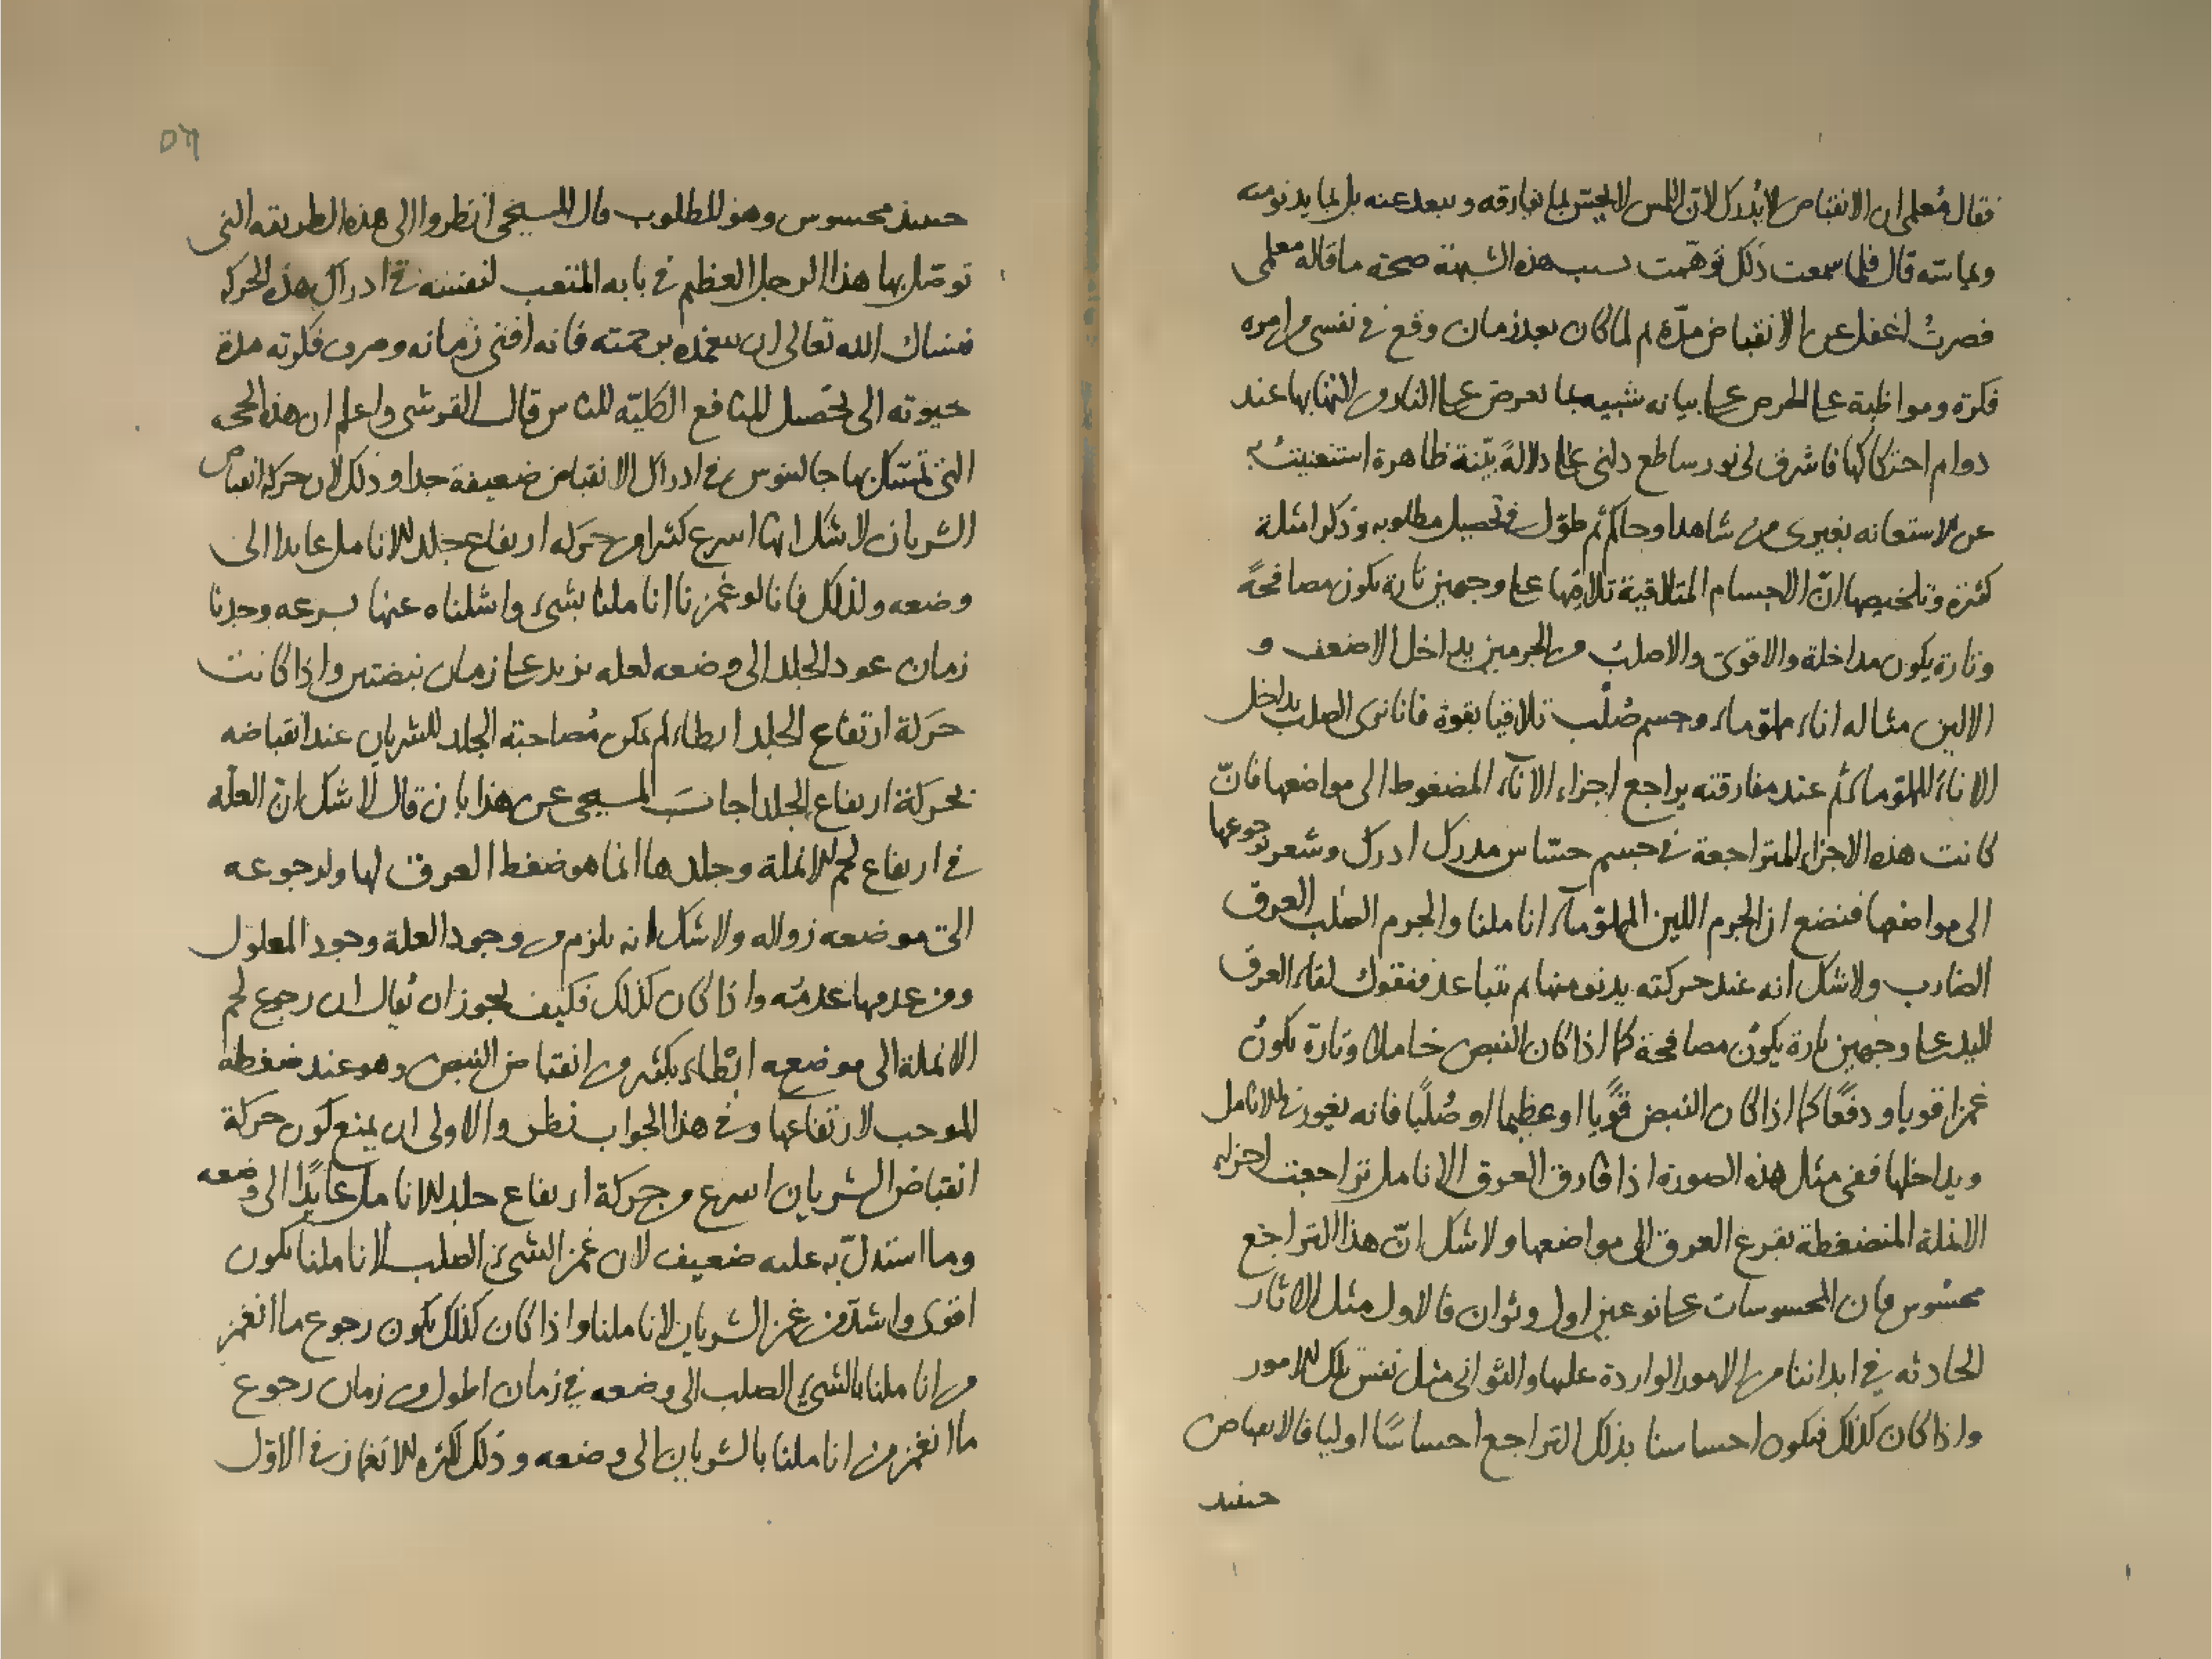 فقال معلمى ان الانقباض لا يدرك لان اللمس لا يحس بما يفارقه ويبعد عنه بل بما يدنو منه
ويماسه قال فلما سمعت ذلك توهمت بسبب هذه الشبهة صحة ما قاله معلمى
فصرت اغفل عن الانقباض مدة ثم لما كان بعد زمان وقع فى نفسى من امره
فكرة ومواظبة على الحرص على بيانه شبيه بما يعرض على النار من التهابها عند
دوام احتكاكها فاشرق لى نور ساطع دلنى على دلالة بينة ظاهرة استغنيت به
عن الاستعانة بغيرى من شاهد او حاكم ثم طول فى تحصيل مطلوبه وذكر امثلة
كثيرة وتلخيصها ان الاجسام المتلاقية تلاقيها على وجهين تارة يكون مصافحةً
وتارة يكون مداخلة والاقوى والاصلب من الجرمين يداخل الاضعف و
الالين مثاله اناء مملو ماء وجسم صُلب تلاقيا بقوة فانا نرى الصلب يداخل
الاناء المملو ماء ثم عند مفارقته يراجع اجزاء الاناء المضغوط الى مواضعها فان
كانت هذه الاجزاء المتراجعة فى جسم حساس مدرك ادرك وشعر برجوعها
الى مواضعها فنضع ان الجرم اللين المملو ماء اناملنا والجرم الصلب العرق
الضارب ولا شك انه عند حركته يدنو منها ثم يتباعد فنقول لقاء العرق
لليد على وجهين تارة يكون مصافحة كما اذا كان النبض خاملا وتارة يكون
غمزا قويا ودفعًا كما اذا كان النبض قويًا او عظيما او صُلبًا فانه يغوز فى الانامل
ويداخلها ففى مثل هذه الصورة اذا فارق العرق الانامل تراجعت اجزاء
الانملة المنضغطة بقرع العرق الى مواضعها ولا شك انّ هذا التراجع
محسوس فان المحسوسات على نوعين اول وثوان فالاول مثل الاثار
الحادثه فى ابداننا من الامور الواردة عليها والثوانى مثل نفس تلك الامور
واذا كان كذلك فيكون احساسنا بذلك التراجع احساسًا اوليا فالانقباض
حينئذ
٥٦
حينئذ محسوس وهو المطلوب قال المسيحى انظروا الى هذه الطريقه التى
توصل بها هذا الرجل العظيم فى بابه المتعب لنفسه فى ادراك هذه الحركه
فنسال الله تعالى ان يتغمده برحمته فانه افنى زمانه وصرف فكرته مدة
حيوته الى تحصيل المنافع الكليّه للناس قال القرشى واعلم ان هذه الحجه
التى تمسك بها جالينوس فى ادراك الانقباض ضعيفة جدا وذلك لان حركة انقباض
الشريان لا شك انها اسرع كثيرا من حركه ارتفاع جلد الانامل عايدا الى
وضعه ولذلك فانا لو غمزنا اناملنا بشىء واشلناه عنها بسرعه وجدنا
زمان عود الجلد الى وضعه لعله يزيد على زمان نبضتين واذا كانت
حركة ارتفاع الجلد ابطاء لم يمكن مُصاحبة الجلد للشريان عند انقباضه
بحركة ارتفاع الجلد اجاب المسيحى عن هذا بان قال لا شك ان العلّه
فى ارتفاع لحم الانملة وجلدها انما هو ضغط العرق لها ولرجوعه
الى موضعه زواله ولا شك انه يلزم من وجود العلة وجود المعلول
ومن عدمها عدمه واذا كان كذلك فكيف يجوز ان يقال ان رجوع لحم
الانملة الى موضعه ابطاء بكثير من انقباض النبض وهو عند ضغطه
الموجب لارتفاعها وفى هذا الجواب نظر والاولى ان يمنع كون حركة
انقباض الشريان اسرع من حركة ارتفاع جلد الانامل عايدًا الى وضعه
وما استدلّ به عليه ضعيف لان غمز الشىء الصلب لاناملنا يكون
اقوى واشد من غمز الشريان لاناملنا واذا كان كذلك يكون رجوع ما انغمز
من اناملنا بالشىء الصلب الى وضعه فى زمان اطول من زمان رجوع
ما انغمز من اناملنا بالشريان الى وضعه وذلك لكثره الانغماز فى الاول